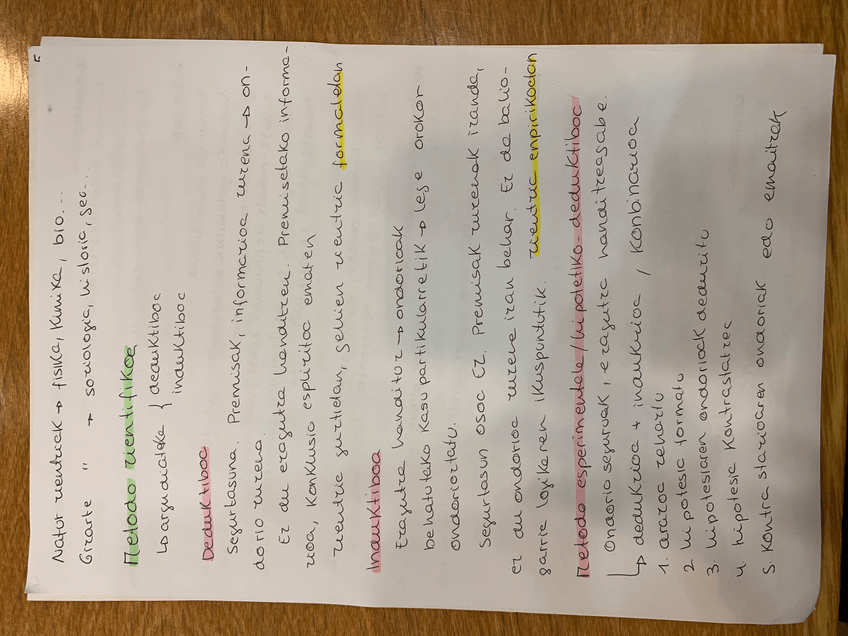 Natur zientziak → fisika, kimika, bio...
Gizarte " → soziologia, historia, geo...
Metodo zientifikoa
↳ argudiatzeko { deduktiboa
induktiboa
Deduktiboa
Segurtasuna. Premisak, informazioa zuzena → on-
dorio zuzena
Ez du ezagutza handitzen. Premisetako informa-
zioa, konklusio esplizitoa ematen
zientzia guztietan, gehien zientzia formaletan
Induktiboa
Ezagutza handitu → ondorioak
behatutako kasu partikularretik → lege orokor
ondorioztatu.
Segurtasun osoa EZ. Premisak zuzenak izanda,
ez du ondorioa zuzena izan behar. Ez da balio-
garria logikaren ikuspuntutik. zientzia enpirikoetan
Metodo esperimentala / hipotetiko-deduktiboa
Ondorio seguruak, ezagutza handitzea gabe.
↳ dedukzioa + indukzioa / konbinazioa
1. arazoa zehaztu
2 hipotesia formatu
3. hipotesiaren ondorioak deduzitu
4 hipotesia kontrastatzea
5. Kontrastazioaren ondorioak edo emaitzak